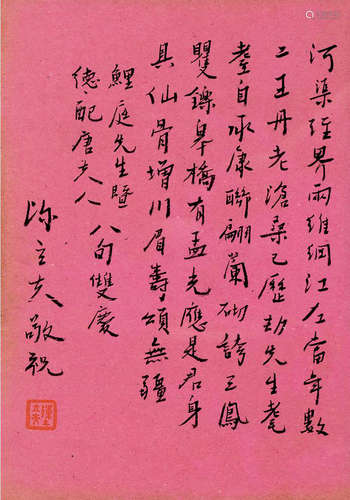 河渠經界兩維綱江左當年數
二王丹老滄桑已歷劫先生耄
耋自承康聯翩蘭砌誇三鳳
矍鑠皋橋有孟光應是君身
具仙骨增川眉壽頌無疆
鯉庭先生暨
德配唐夫人八旬雙慶
陳立夫敬祝